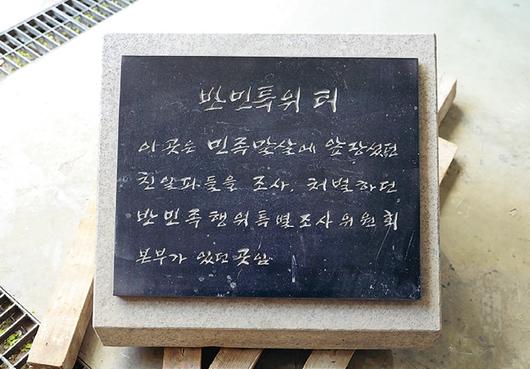 반민특위 터
이 곳은 민족말살에 앞장섰던
친일파들을 조사, 처벌하던
반민족행위특별조사위원회
본부가 있던 곳임